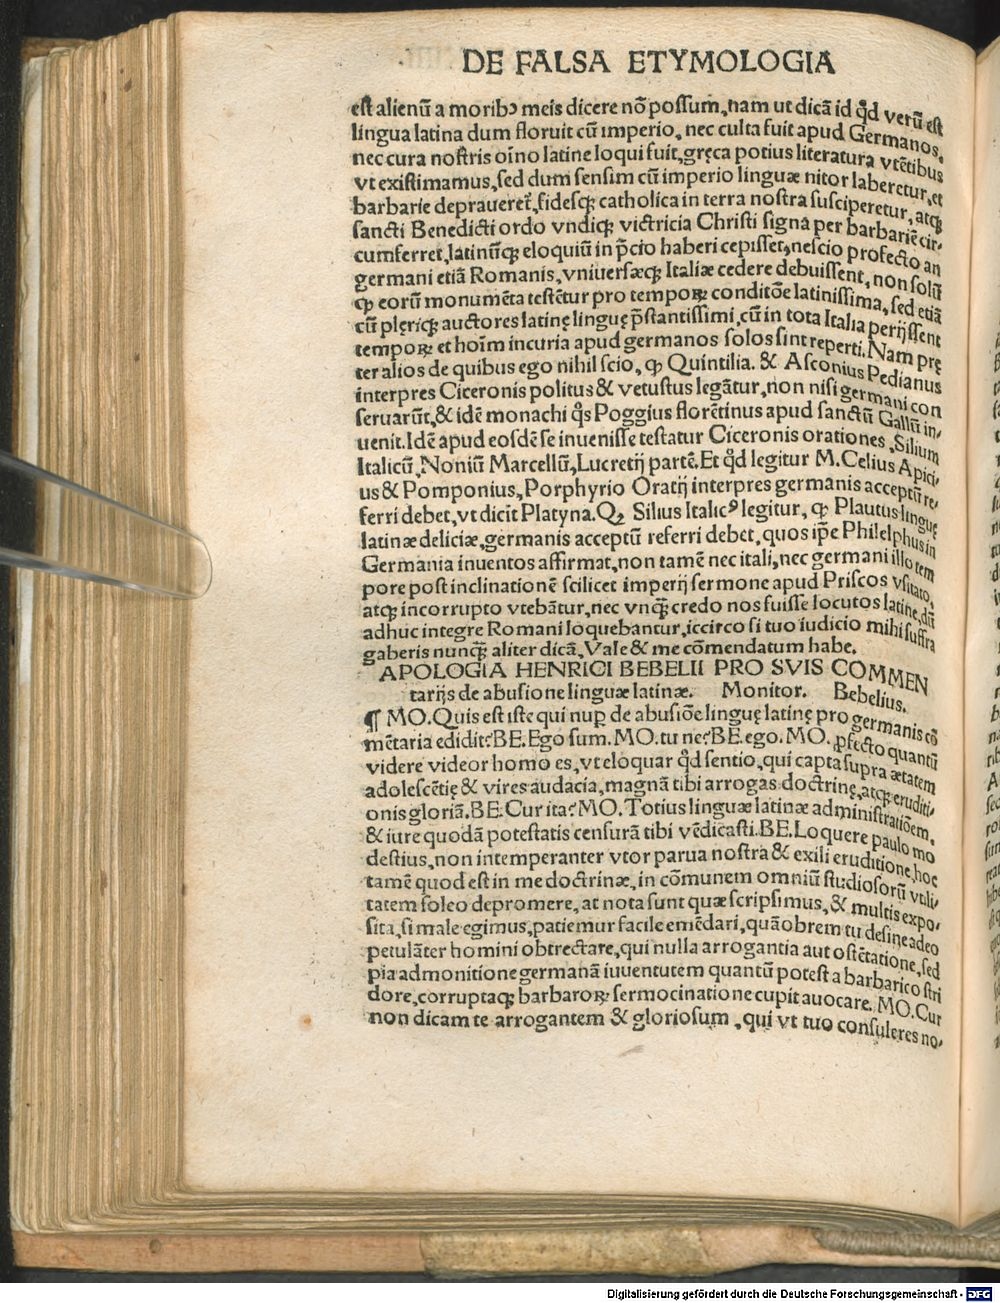 DE FALSA ETYMOLOGIA
est alienũ a moribꝰ meis dicere nõ possum, nam ut dicã id qđ verũ est
lingua latina dum floruit cũ imperio, nec culta fuit apud Germanos,
nec cura nostris oĩno latine loqui fuit, gręca potius literatura vtẽtibus
vt existimamus, sed dum sensim cũ imperio linguæ nitor laberetur, et
barbarie depraueret᷑, fidesqꝫ catholica in terra nostra susciperetur, atqꝫ
sancti Benedicti ordo vndiqꝫ victricia Christi signa per barbariẽ cir-
cumferret, latinũqꝫ eloquiũ in p̃cio haberi cepisset, nescio profecto an
germani etiã Romanis, vniuersæqꝫ Italiæ cedere debuissent, non solũ
ꝙ eorũ monumẽta testẽtur pro temporꝝ conditõe latinissima, sed etiã
cũ plęriqꝫ auctores latinę linguę p̃stantissimi, cũ in tota Italia perijssent
temporꝝ et hoĩm incuria apud germanos solos sint reperti. Nam prę
ter alios de quibus ego nihil scio, ꝙ Quintilia. & Asconius Pedianus
interpres Ciceronis politus & vetustus legãtur, non nisi germani con
seruarũt, & idẽ monachi q̃s Poggius florẽtinus apud sanctũ Gallũ in-
uenit. Idẽ apud eosdẽ se inuenisse testatur Ciceronis orationes, Silium
Italicũ, Noniũ Marcellũ, Lucretij partẽ. Et qđ legitur M. Celius Apici-
us & Pomponius, Porphyrio Oratij interpres germanis acceptũ re-
ferri debet, vt dicit Platyna. Qꝫ Silius Italicꝰ legitur, ꝙ Plautus linguę
latinæ deliciæ, germanis acceptũ referri debet, quos ip̃e Philelphus in
Germania inuentos affirmat, non tamẽ nec itali, nec germani illo tem
pore post inclinationẽ scilicet imperij sermone apud Priscos vsitato,
atqꝫ incorrupto vtebãtur, nec vnqꝫ̃ credo nos fuisse locutos latine, dũ
adhuc integre Romani loquebantur, iccirco si tuo iudicio mihi suffra
gaberis nunqꝫ̃ aliter dicã, Vale & me cõmendatum habe.
APOLOGIA HENRICI BEBELII PRO SVIS COMMEN
tarijs de abusione linguæ latinæ. Monitor. Bebelius.
¶ MO. Quis est iste qui nuꝑ de abusiõe linguę latinę pro germanis cõ
mẽtaria edidit? BE. Ego sum. MO. tu ne? BE. ego. MO. ꝓfecto quantũ
videre videor homo es, vt eloquar qđ sentio, qui capta supra ætatem
adolescẽtię & vires audacia, magnã tibi arrogas doctrinę, atqꝫ eruditi-
onis gloriã. BE. Cur ita? MO. Totius linguæ latinæ administratiõem,
& iure quodã potestatis censurã tibi vẽdicasti. BE. Loquere paulo mo
destius, non intemperanter vtor parua nostra & exili eruditione, hoc
tamẽ quod est in me doctrinæ, in cõmunem omniũ studiosorũ vtili-
tatem soleo depromere, at nota sunt quæ scripsimus, & multis expo-
sita, si male egimus, patiemur facile emẽdari, quãobrem tu desine adeo
petulãter homini obtrectare, qui nulla arrogantia aut ostẽtatione, sed
pia admonitione germanã iuuentutem quantũ potest a barbarico stri
dore, corruptaqꝫ barbarorꝝ sermocinatione cupit auocare. MO. Cur
non dicam te arrogantem & gloriosum, qui vt tuo consuleres no-
Digitalisierung gefördert durch die Deutsche Forschungsgemeinschaft - DFG